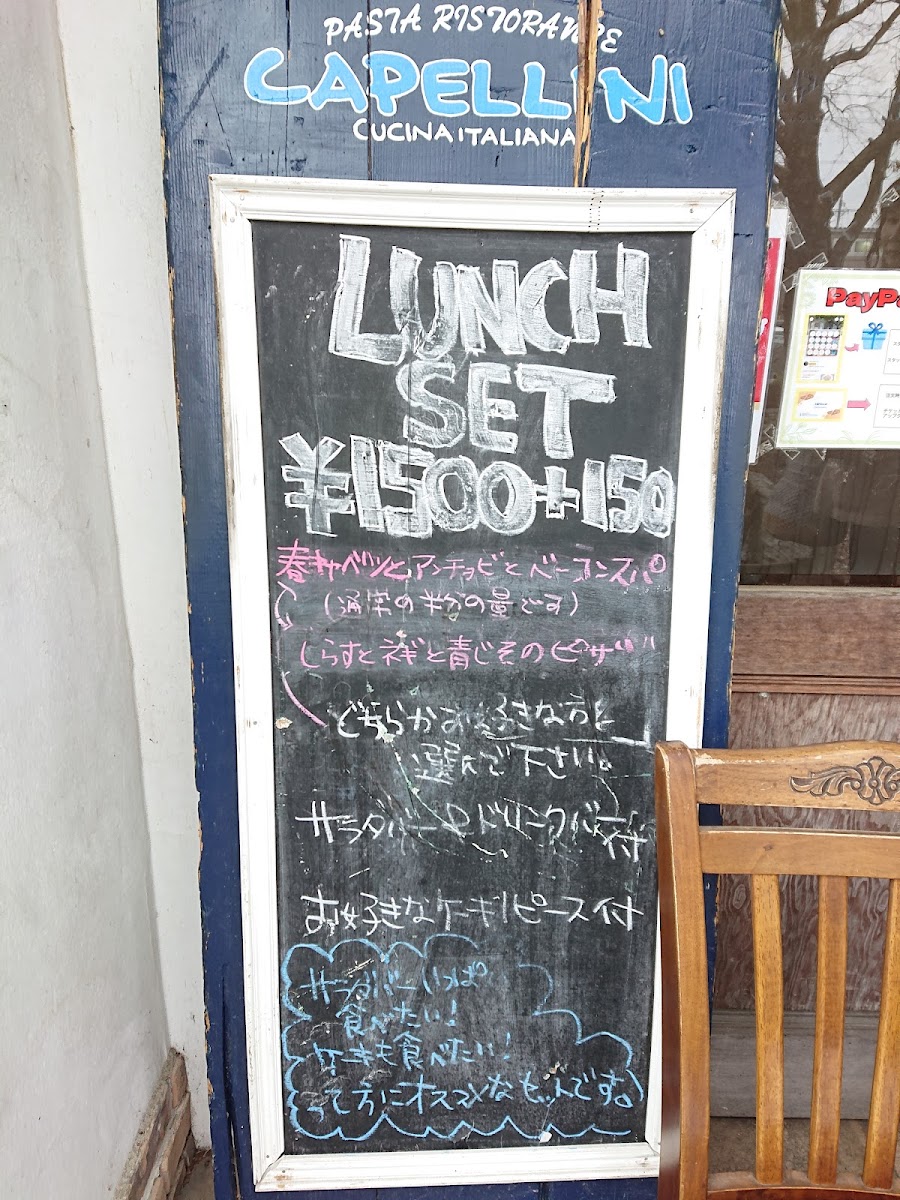 PASTA RISTORANTE
CAPELLINI
CUCINA ITALIANA
LUNCH
SET
¥1500+150
春キャベツとアンチョビとベーコンスパ
(通常の半分の量です)
しらすとネギと青じそのピザ
どちらかお好きな方を
選んで下さい。
サラダバーとドリンクバー付
お好きなケーキ1ピース付
サラダバーいっぱ
食べたい!
ケーキも食べたい!
って方にオススメな
です。
PayPa